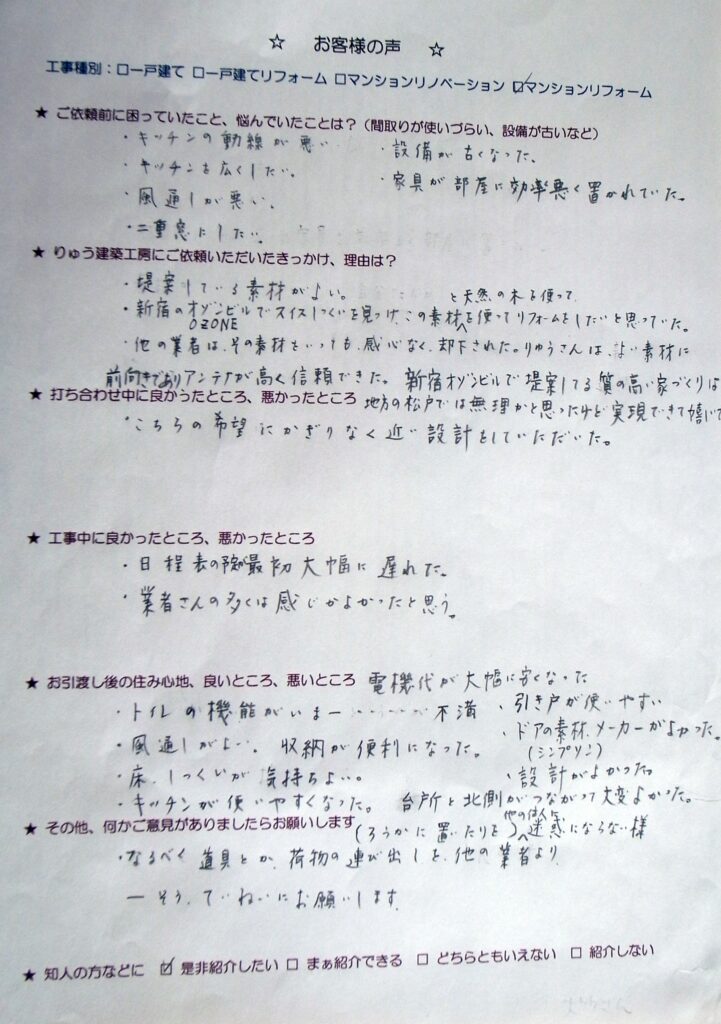 ☆ お客様の声 ☆
工事種別：□一戸建て □一戸建てリフォーム □マンションリノベーション ☑マンションリフォーム
★ ご依頼前に困っていたこと、悩んでいたことは？（間取りが使いづらい、設備が古いなど）
・キッチンの動線が悪い ・設備が古くなった。
・キッチンを広くしたい。 ・家具が部屋に効率悪く置かれていた。
・風通しが悪い。
・二重窓にしたい。
★ りゅう建築工房にご依頼いただいたきっかけ、理由は？
・堤案している素材がよい。 と天然の木を使って
・新宿のオゾンビルでスイスしっくいを見つけ、この素材を使ってリフォームをしたいと思っていた。
OZONE
・他の業者は、その素材をいっても、感心なく、却下された。りゅうさんは、よい素材に
前向きでありアンテナが高く信頼できた。 新宿オゾンビルで堤案してる質の高い家づくりは
★ 打ち合わせ中に良かったところ、悪かったところ 地方の松戸では無理かと思ったけど実現できて嬉しい
・こちらの希望にかぎりなく近い設計をしていただいた。
★ 工事中に良かったところ、悪かったところ
・日程表の 最初大幅に遅れた。
・業者さんの多くは感じがよかったと思う。
★ お引渡し後の住み心地、良いところ、悪いところ 電機代が大幅に安くなった
・トイレの機能がいま一 不満 ・引き戸が使いやすい
・風通しがよい。 収納が便利になった。 ・ドアの素材、メーカーがよかった。
(シンプソン)
・床、しっくいが気持ちよい。 ・設計がよかった
・キッチンが使いやすくなった。 台所と北側がつながって大変よかった。
★ その他、何かご意見がありましたらお願いします (ろうかに置いたりを) 他の住人に 迷惑にならない様
・なるべく道具とか、荷物の運び出しを、他の業者より
一そう、ていねいにお願いします。
★ 知人の方などに ☑ 是非紹介したい □ まぁ紹介できる □ どちらともいえない □ 紹介しない